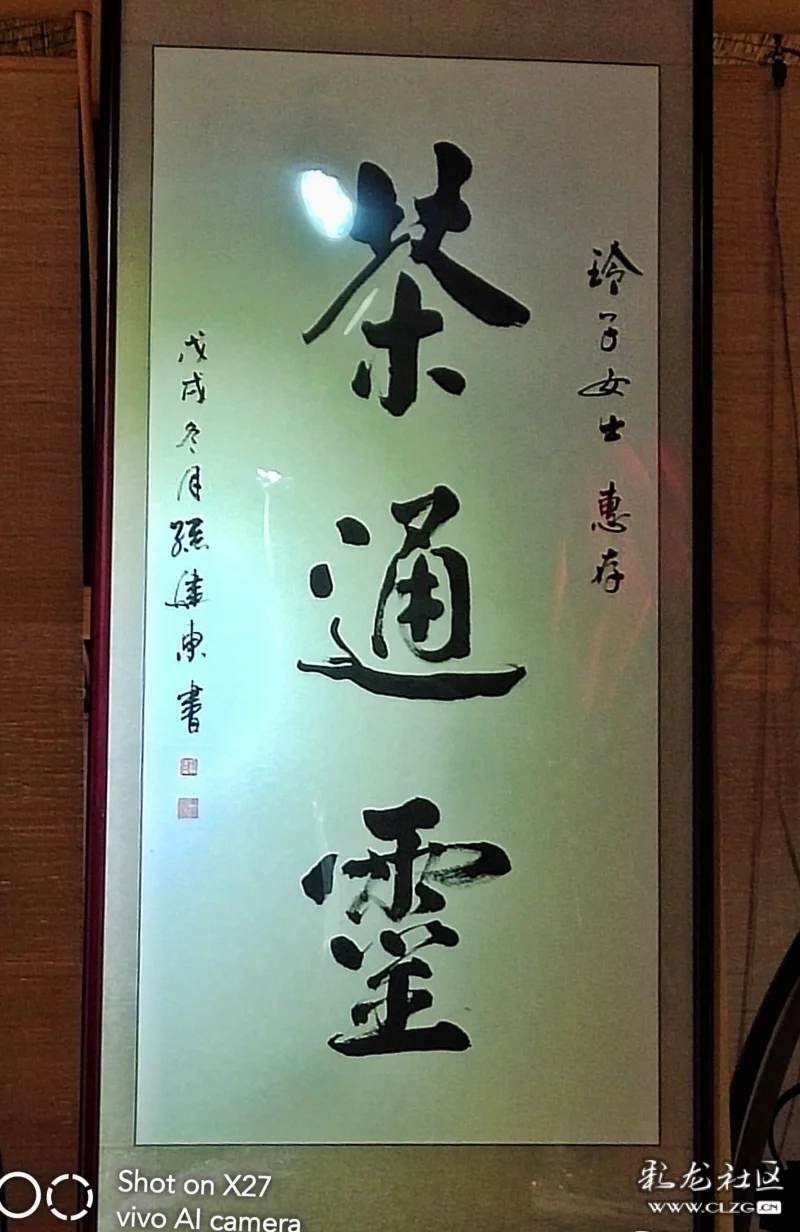 玲子女士 惠存
茶通靈
戊戌冬月孫建東書
Shot on X27
vivo AI camera
彩龙社区
WWW.CLZG.CN